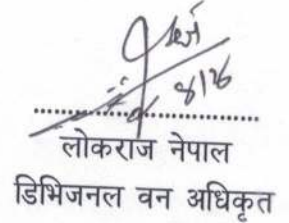 लोकराज नेपाल
डिभिजनल वन अधिकृत